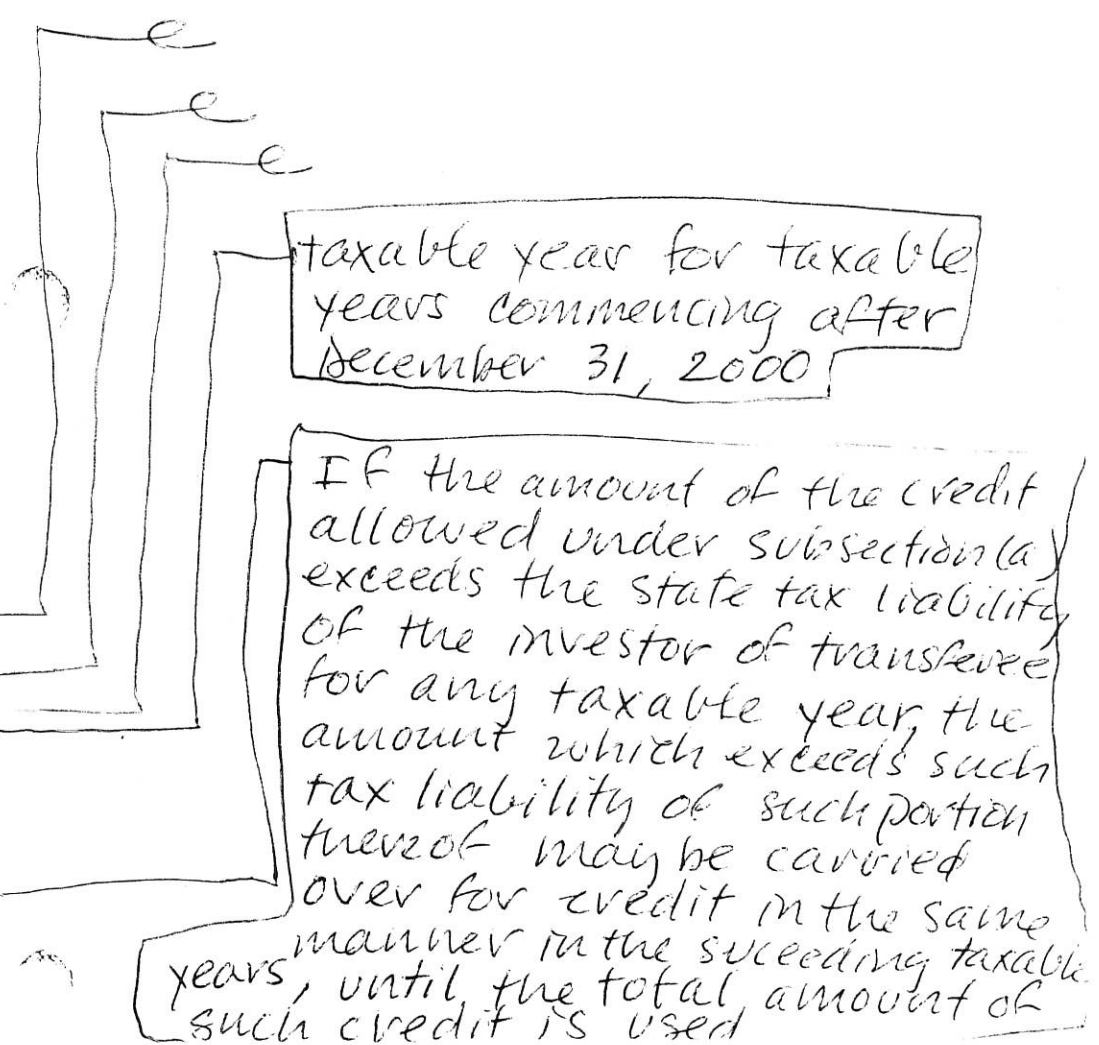 taxable year for taxable
years commencing after
December 31, 2000
If the amount of the credit
allowed under subsection (a)
exceeds the state tax liability
of the investor of transferee
for any taxable year, the
amount which exceeds such
tax liability of such portion
thereof may be carried
over for credit in the same
manner in the suceeding taxable
years, until the total amount of
such credit is used